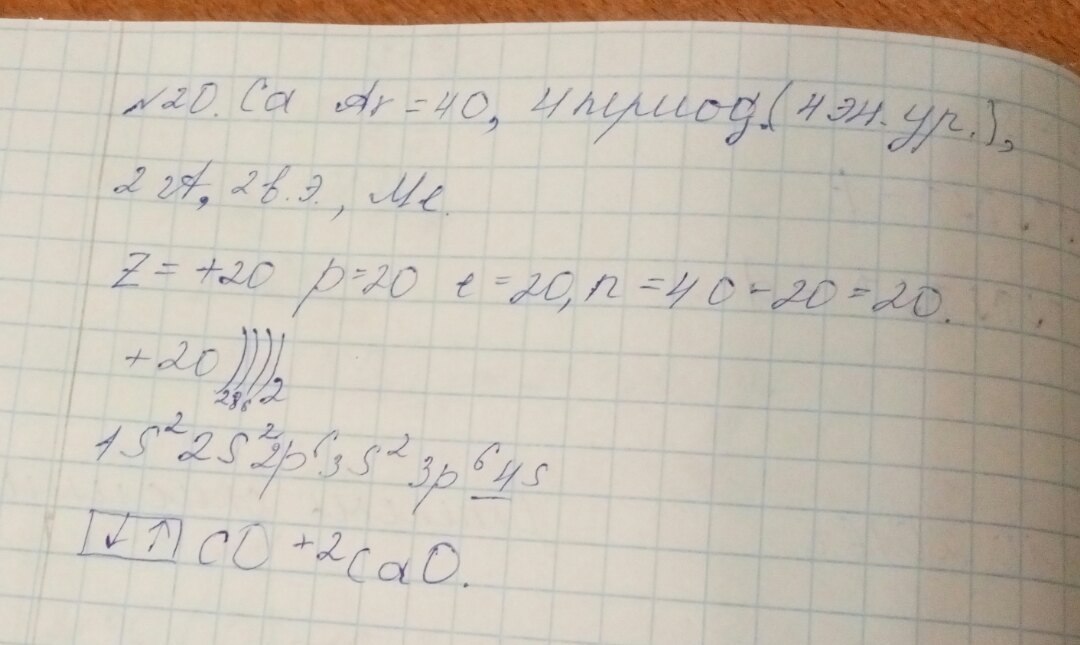 №20. Ca Ar = 40, 4 период. (4 эн. ур.),
2 гА, 2 в.э., Ме.
Z = +20 p = 20 e = 20, n = 40 - 20 = 20.
+20 )))) 2 8 8 2
1s² 2s² 2p⁶ 3s² 3p⁶ 4s
↓↑ CO +2 CaO.